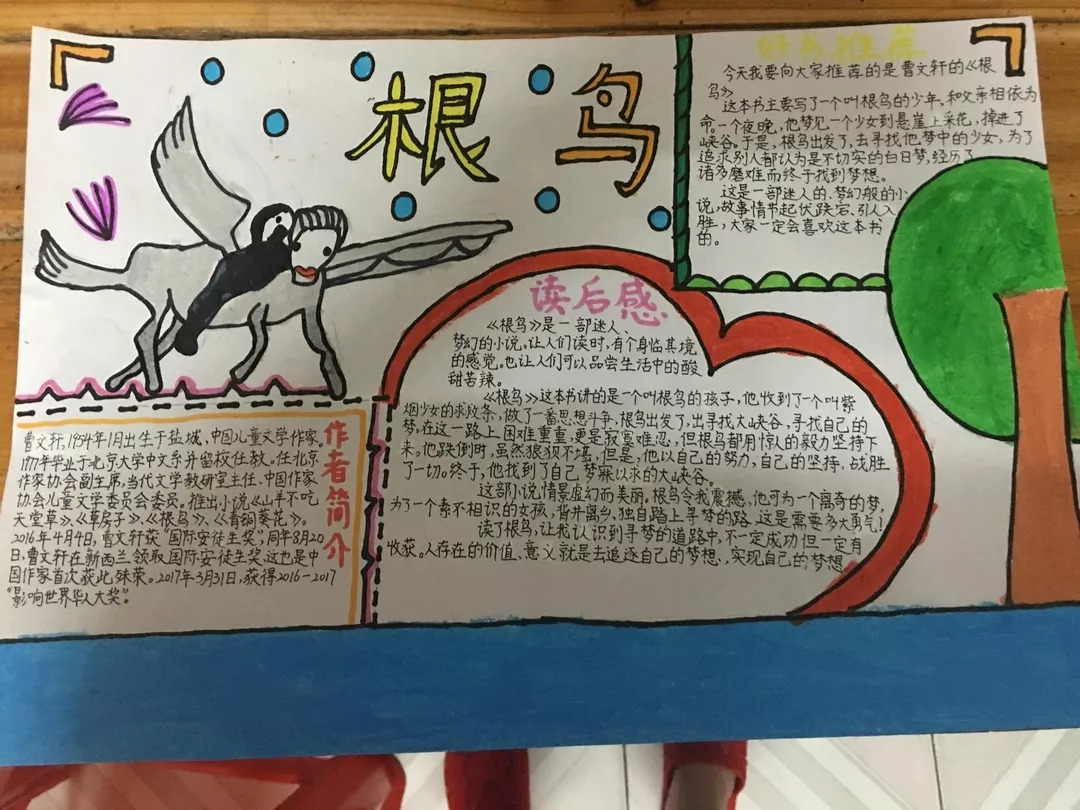 根鸟
好书推荐
今天我要向大家推荐的是曹文轩的《根
鸟》
这本书主要写了一个叫根鸟的少年,和父亲相依为
命。一个夜晚,他梦见一个少女到悬崖上采花,掉进了
峡谷。于是,根鸟出发了,去寻找他梦中的少女,为了
追求别人都认为是不切实的白日梦,经历了
诸多磨难而终于找到梦想。
这是一部迷人的、梦幻般的小
说,故事情节起伏跌宕、引人入
胜,大家一定会喜欢这本书
的。
读后感
《根鸟》是一部迷人、
梦幻的小说,让人们读时,有个身临其境
的感觉。也让人们可以品尝生活中的酸
甜苦辣。
《根鸟》这本书讲的是一个叫根鸟的孩子,他收到了一个叫紫
烟少女的求救条,做了一番思想斗争,根鸟出发了,出寻找大峡谷,寻找自己的
梦,在这一路上困难重重,更是寂寞难忍,但根鸟都用惊人的毅力坚持下
来。他跌倒时,虽然狼狈不堪,但是,他以自己的努力,自己的坚持,战胜
了一切。终于,他找到了自己梦寐以求的大峡谷。
这部小说情景虚幻而美丽,根鸟令我震撼,他可为一个离奇的梦,
为了一个素不相识的女孩,背井离乡,独自踏上寻梦的路,这是需要多大勇气!
读了根鸟,让我认识到寻梦的道路中,不一定成功但一定有
收获。人存在的价值、意义就是去追逐自己的梦想,实现自己的梦想。
作者简介
曹文轩,1954年1月出生于盐城,中国儿童文学作家。
1977年毕业于北京大学中文系并留校任教。任北京
作家协会副主席,当代文学教研室主任、中国作家
协会儿童文学委员会委员。推出小说《山羊不吃
天堂草》、《草房子》、《根鸟》、《青铜葵花》。
2016年4月4日,曹文轩获“国际安徒生奖”;同年8月20
日,曹文轩在新西兰领取国际安徒生奖,这也是中
国作家首次获此殊荣。2017年3月31日,获得2016-2017
“影响世界华人大奖”。